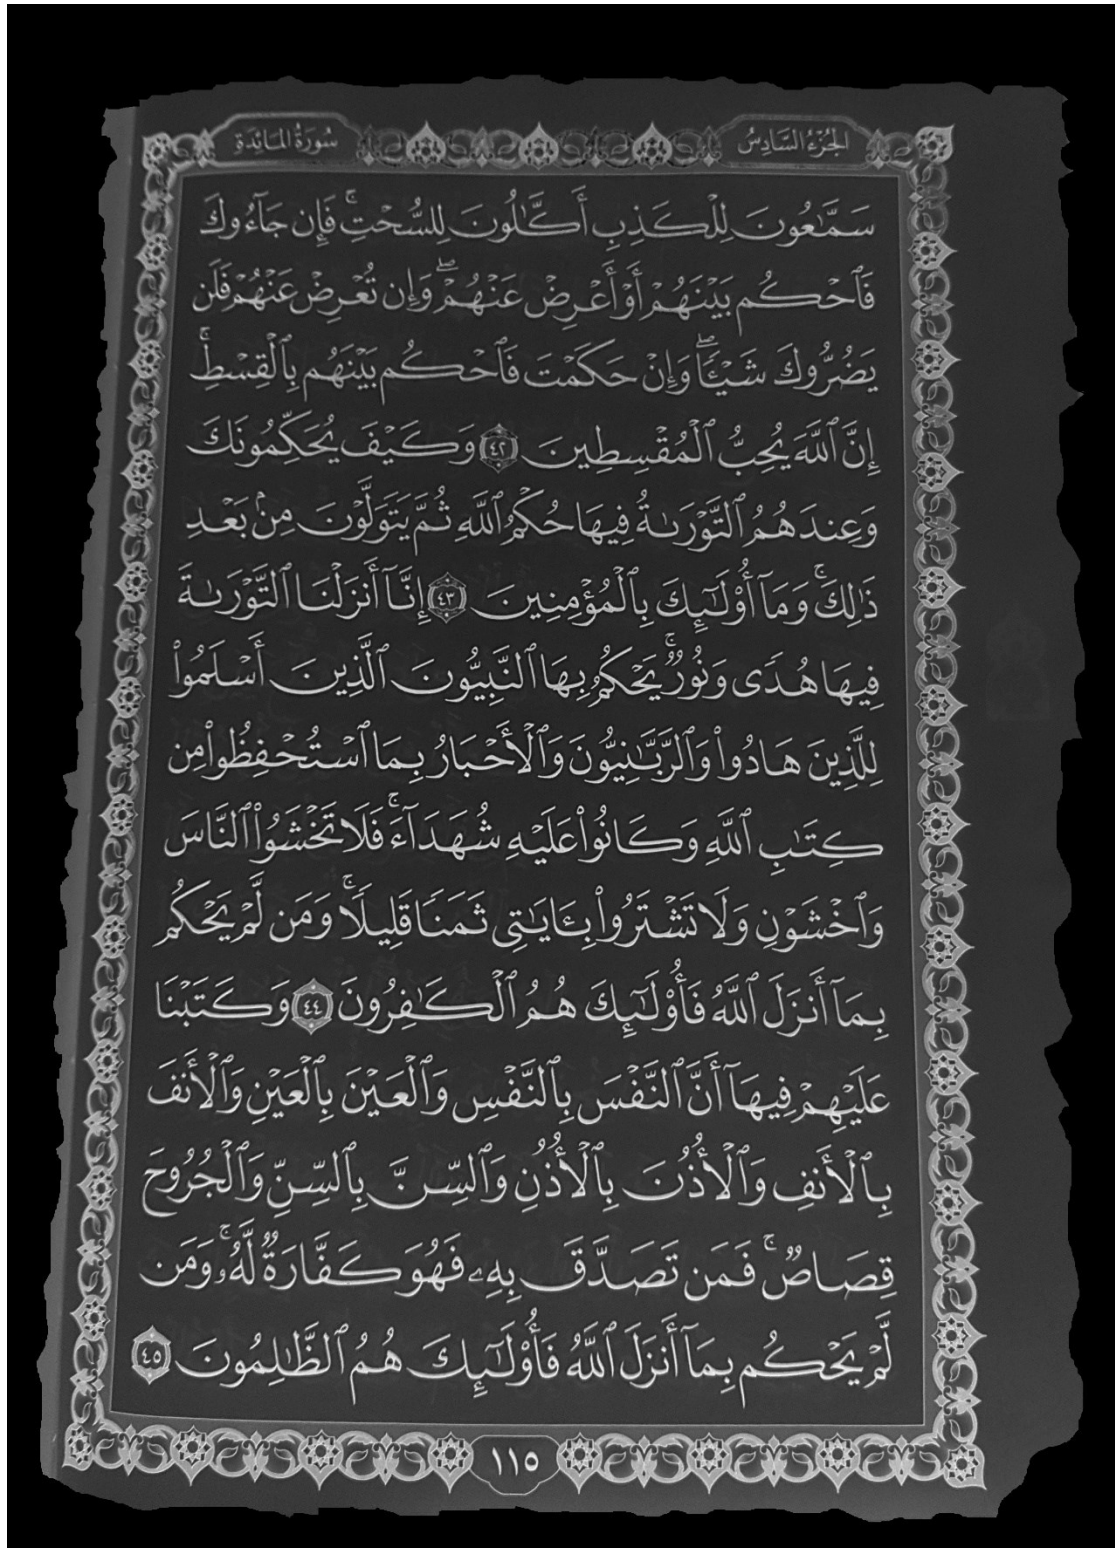 الجُزْءُ السَّادِسُ سُورَةُ المَائِدَة
سَمَّٰعُونَ لِلْكَذِبِ أَكَّٰلُونَ لِلسُّحْتِۚ فَإِن جَآءُوكَ
فَٱحْكُم بَيْنَهُمْ أَوْ أَعْرِضْ عَنْهُمْۖ وَإِن تُعْرِضْ عَنْهُمْ فَلَن
يَضُرُّوكَ شَيْـًٔاۖ وَإِنْ حَكَمْتَ فَٱحْكُم بَيْنَهُم بِٱلْقِسْطِۚ
إِنَّ ٱللَّهَ يُحِبُّ ٱلْمُقْسِطِينَ ٤٢ وَكَيْفَ يُحَكِّمُونَكَ
وَعِندَهُمُ ٱلتَّوْرَىٰةُ فِيهَا حُكْمُ ٱللَّهِ ثُمَّ يَتَوَلَّوْنَ مِنۢ بَعْدِ
ذَٰلِكَۚ وَمَآ أُو۟لَٰٓئِكَ بِٱلْمُؤْمِنِينَ ٤٣ إِنَّآ أَنزَلْنَا ٱلتَّوْرَىٰةَ
فِيهَا هُدًى وَنُورٌۚ يَحْكُمُ بِهَا ٱلنَّبِيُّونَ ٱلَّذِينَ أَسْلَمُوا۟
لِلَّذِينَ هَادُوا۟ وَٱلرَّبَّٰنِيُّونَ وَٱلْأَحْبَارُ بِمَا ٱسْتُحْفِظُوا۟ مِن
كِتَٰبِ ٱللَّهِ وَكَانُوا۟ عَلَيْهِ شُهَدَآءَۚ فَلَا تَخْشَوُا۟ ٱلنَّاسَ
وَٱخْشَوْنِ وَلَا تَشْتَرُوا۟ بِـَٔايَٰتِى ثَمَنًا قَلِيلًاۚ وَمَن لَّمْ يَحْكُم
بِمَآ أَنزَلَ ٱللَّهُ فَأُو۟لَٰٓئِكَ هُمُ ٱلْكَٰفِرُونَ ٤٤ وَكَتَبْنَا
عَلَيْهِمْ فِيهَآ أَنَّ ٱلنَّفْسَ بِٱلنَّفْسِ وَٱلْعَيْنَ بِٱلْعَيْنِ وَٱلْأَنفَ
بِٱلْأَنفِ وَٱلْأُذُنَ بِٱلْأُذُنِ وَٱلسِّنَّ بِٱلسِّنِّ وَٱلْجُرُوحَ
قِصَاصٌۚ فَمَن تَصَدَّقَ بِهِۦ فَهُوَ كَفَّارَةٌ لَّهُۥۚ وَمَن
لَّمْ يَحْكُم بِمَآ أَنزَلَ ٱللَّهُ فَأُو۟لَٰٓئِكَ هُمُ ٱلظَّٰلِمُونَ ٤٥
١١٥